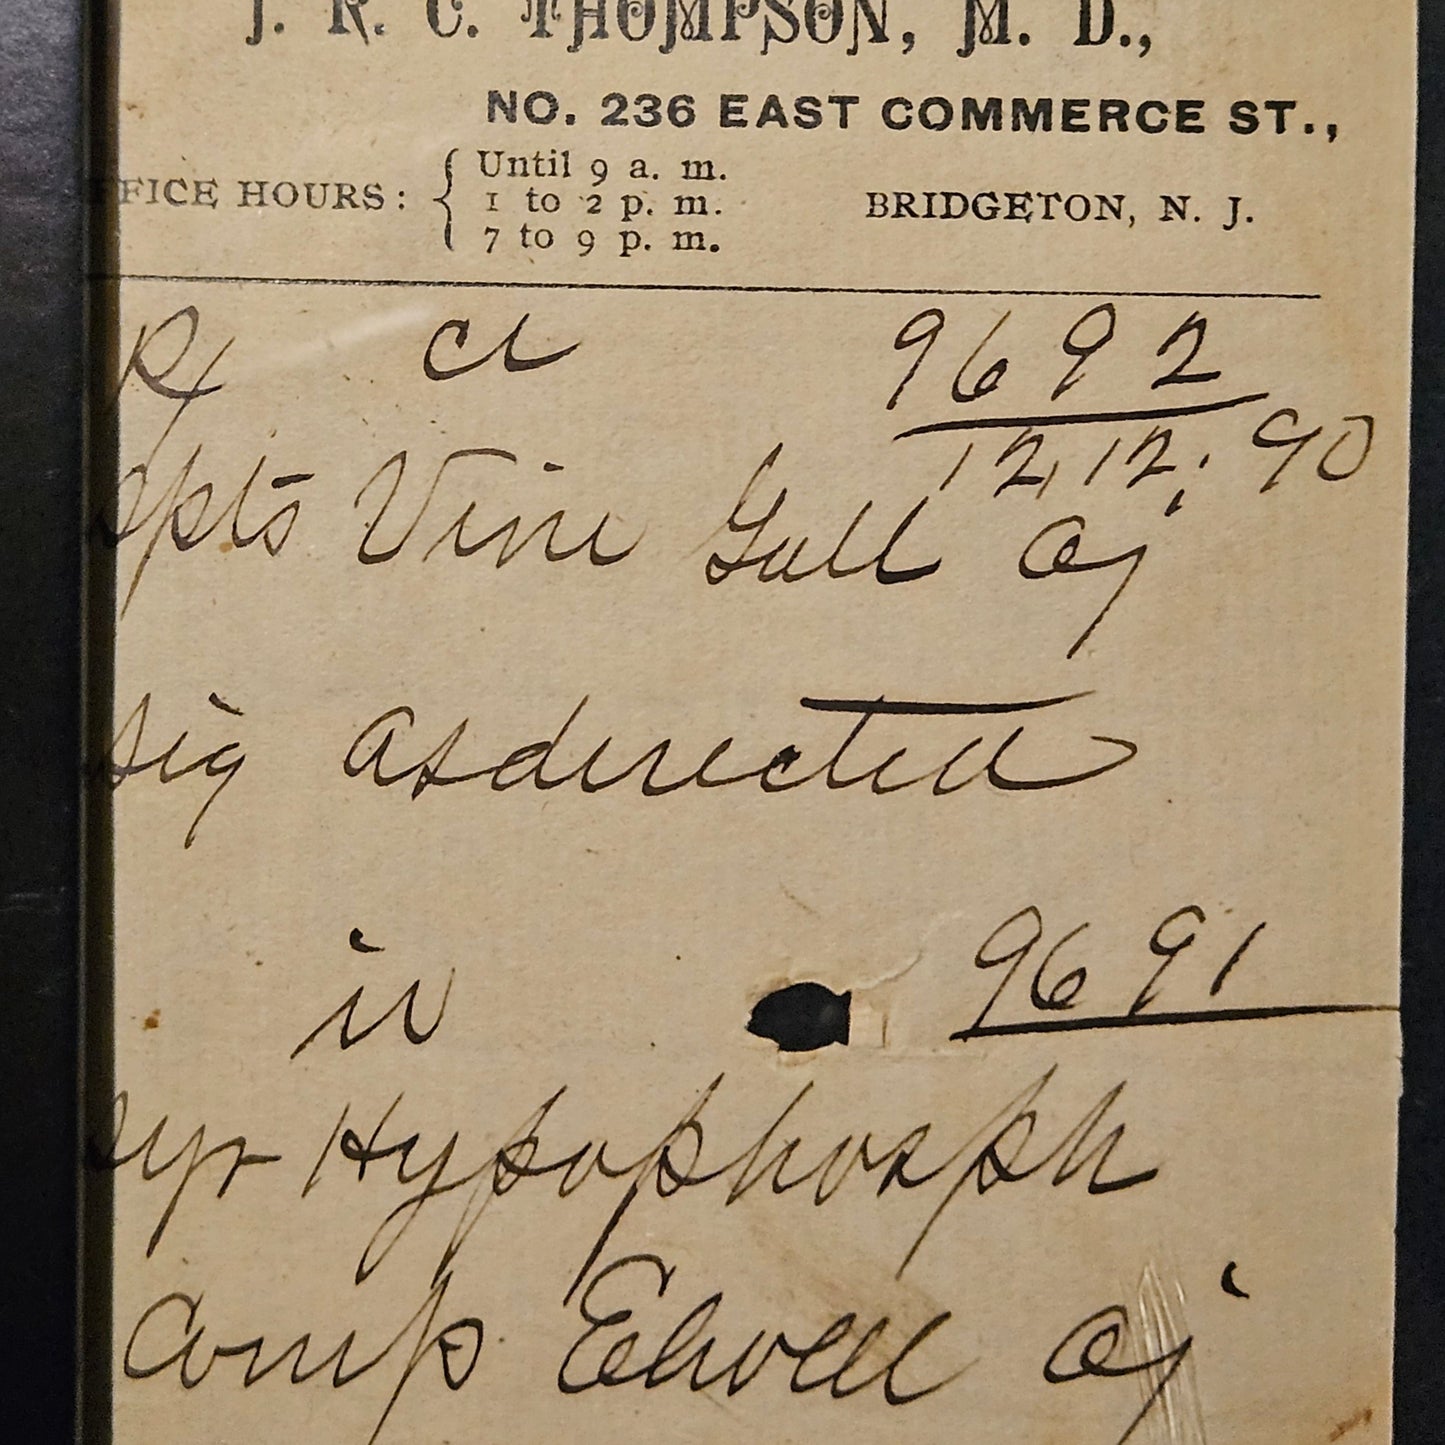 J. R. C. THOMPSON, M. D.,
NO. 236 EAST COMMERCE ST.,
FFICE HOURS: { Until 9 a. m.
1 to 2 p. m.
7 to 9 p. m.
BRIDGETON, N. J.
Rx 9692
12, 12, 90
Vini Gall Oj
sig as directed
9691
syr Hypophosph
Comp Elwell Oj